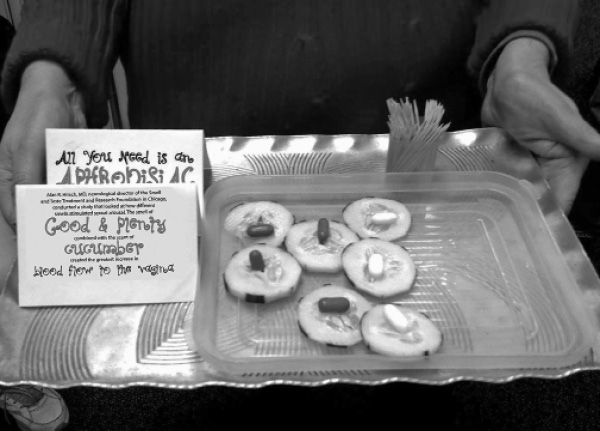 All You Need is an
APHRODISIAC
Alan R. Hirsch, MD, neurological director of the Smell
and Taste Treatment and Research Foundation in Chicago,
conducted a study that looked at how different
smells stimulated sexual arousal. The smell of
Good & Plenty
combined with the scent of
cucumber
created the greatest increase in
blood flow to the vagina